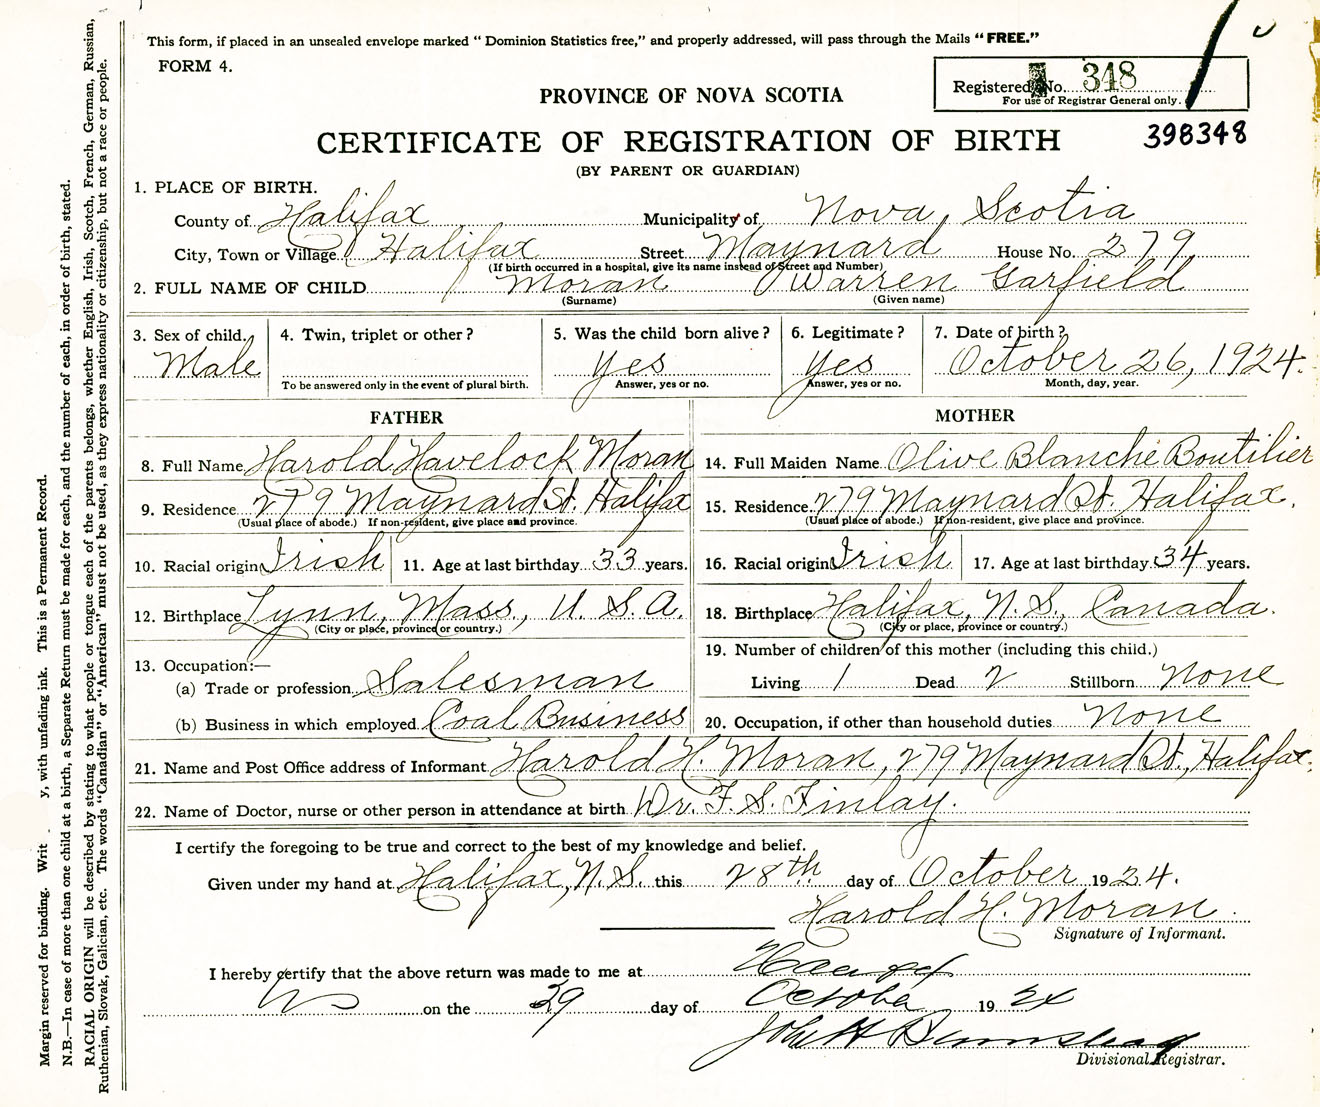 This form, if placed in an unsealed envelope marked "Dominion Statistics free," and properly addressed, will pass through the Mails "FREE."
FORM 4.
Registered No. 348
For use of Registrar General only.
PROVINCE OF NOVA SCOTIA
398348
CERTIFICATE OF REGISTRATION OF BIRTH
(BY PARENT OR GUARDIAN)
1. PLACE OF BIRTH.
County of Halifax Municipality of Nova Scotia
City, Town or Village Halifax Street Maynard House No. 279
(If birth occurred in a hospital, give its name instead of Street and Number)
2. FULL NAME OF CHILD Moran Warren Garfield
(Surname) (Given name)
3. Sex of child. 4. Twin, triplet or other? 5. Was the child born alive? 6. Legitimate? 7. Date of birth?
Male Yes Yes October 26, 1924.
To be answered only in the event of plural birth. Answer, yes or no. Answer, yes or no. Month, day, year.
FATHER MOTHER
8. Full Name Harold Havelock Moran 14. Full Maiden Name Olive Blanche Boutilier
9. Residence 279 Maynard St. Halifax 15. Residence 279 Maynard St. Halifax.
(Usual place of abode.) If non-resident, give place and province. (Usual place of abode.) If non-resident, give place and province.
10. Racial origin Irish 11. Age at last birthday 33 years. 16. Racial origin Irish 17. Age at last birthday 34 years.
12. Birthplace Lynn, Mass., U. S. A. 18. Birthplace Halifax, N. S., Canada.
(City or place, province or country.) (City or place, province or country.)
13. Occupation:— 19. Number of children of this mother (including this child.)
(a) Trade or profession Salesman Living 1 Dead 2 Stillborn None
(b) Business in which employed Coal Business 20. Occupation, if other than household duties None
21. Name and Post Office address of Informant Harold H. Moran, 279 Maynard St., Halifax.
22. Name of Doctor, nurse or other person in attendance at birth Dr. F. S. Finlay.
I certify the foregoing to be true and correct to the best of my knowledge and belief.
Given under my hand at Halifax, N. S. this 28th day of October 1924.
Harold H. Moran
Signature of Informant.
I hereby certify that the above return was made to me at
NS on the 29 day of October 1924
John
Divisional Registrar.
Margin reserved for binding. Writ y, with unfading ink. This is a Permanent Record.
N.B.—In case of more than one child at a birth, a Separate Return must be made for each, and the number of each, in order of birth, stated.
RACIAL ORIGIN will be described by stating to what people or tongue each of the parents belongs, whether English, Irish, Scotch, French, German, Russian,
Ruthenian, Slovak, Galician, etc. The words "Canadian" or "American" must not be used, as they express nationality or citizenship, but not a race or people.